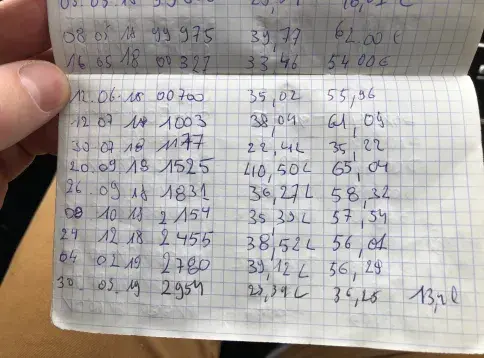 08 05 18 99975 39,77 62.00 €
16 05 18 00327 33.46 54 00€
12.06.18 00700 35,02 55,96
12 07 18 1003 38,04 61,09
30 07 18 1177 22,42 35,22
20.09 18 1525 40,50L 65,04
26.09 18 1831 36,27L 58,32
10 18 2154 35,39L 57,54
24 12 18 2455 38,52L 56,01
04 02 19 2780 39,12L 56,29
30 03.19 2954 36,26